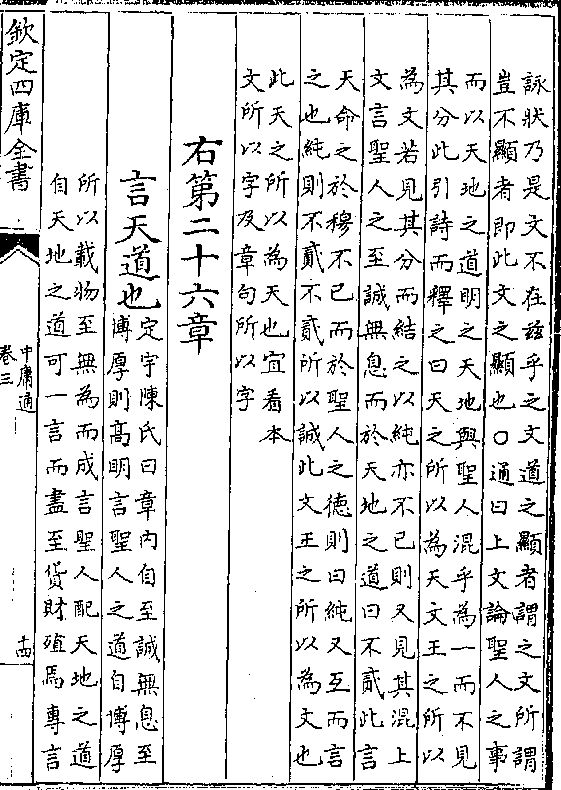 詠狀乃是文不在兹乎之文道之顯者謂之文所謂
豈不顯者即此文之顯也〇通曰上文論聖人之事
而以天地之道明之天地與聖人混乎為一而不見
其分此引詩而釋之曰天之所以為天文王之所以
為文若見其分而結之以純亦不已則又見其混上
文言聖人之至誠無息而於天地之道曰不貳此言
天命之於穆不已而於聖人之德則曰純又互而言
之也純則不貳不貳所以誠此文王之所以為文也
此天之所以為天也宜看本
文所以字及章句所以字
右第二十六章
言天道也
定宇陳氏曰章内自至誠無息至
博厚則高明言聖人之道自博厚
所以載物至無為而成言聖人配天地之道
自天地之道可一言而盡至貨財殖焉專言
欽定四庫全書
中庸通
卷三
十四